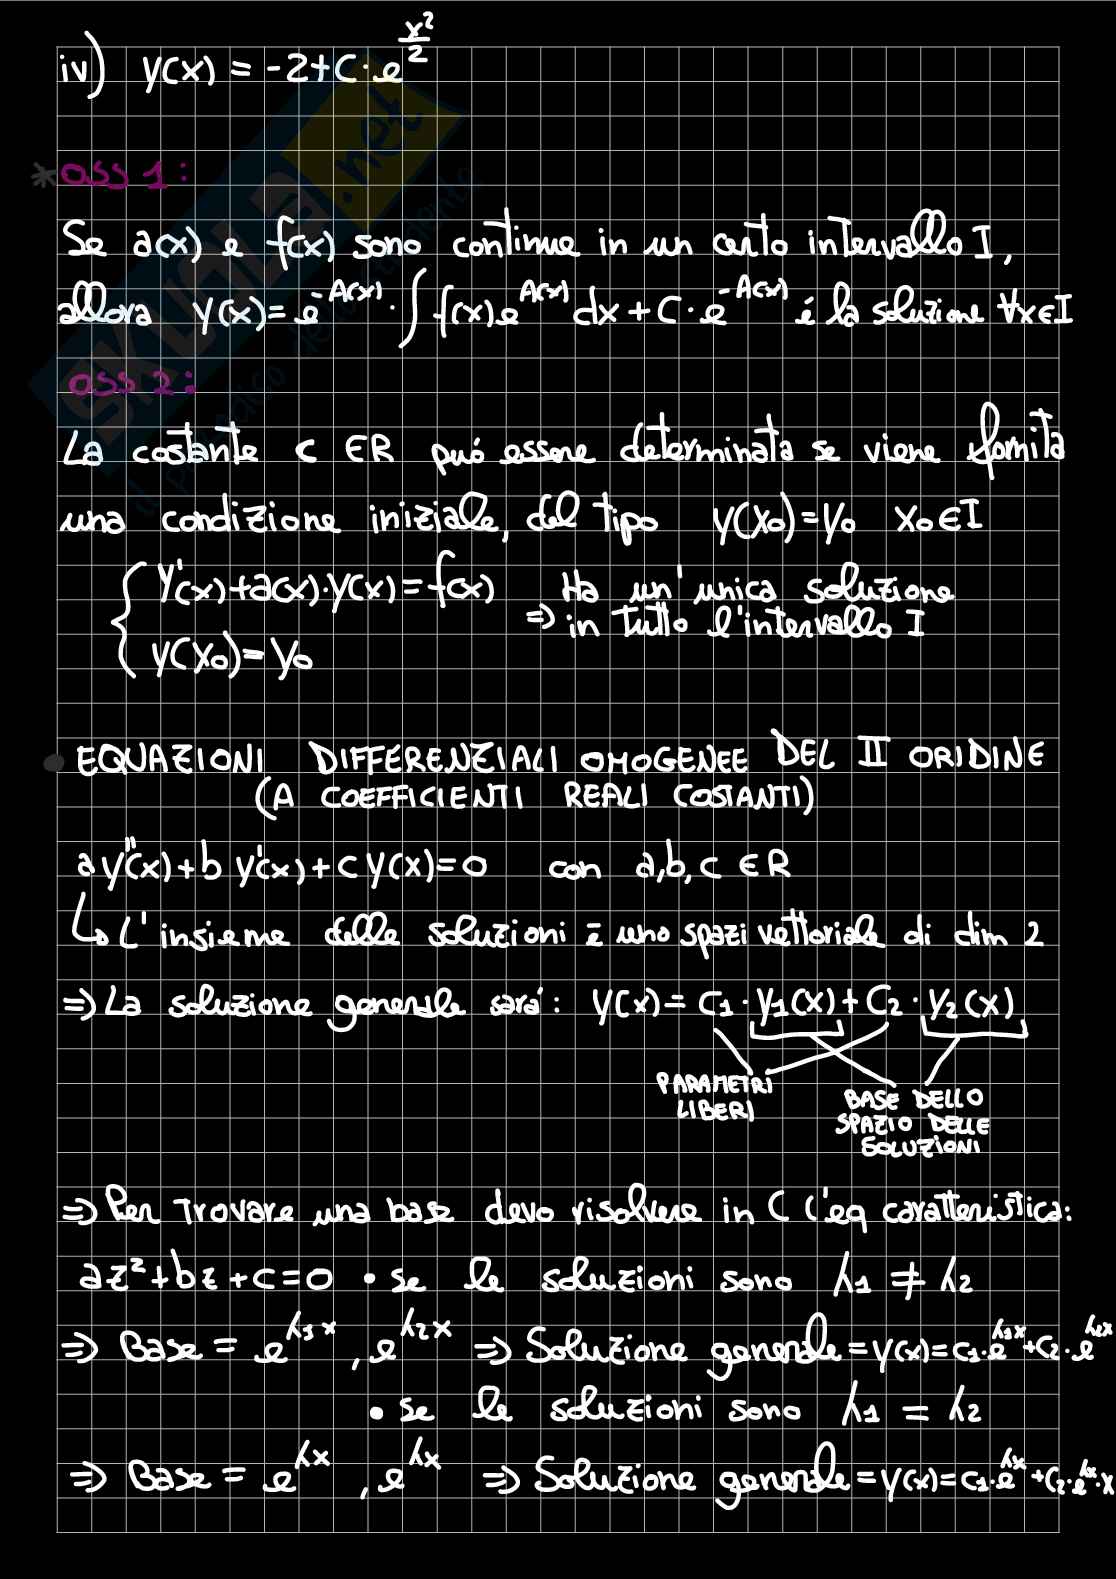 iv) y(x) = -2+C·e^(x²/2)
*OSS 1:
Se a(x) e f(x) sono continue in un certo intervallo I,
allora y(x)= e^(-A(x)) · ∫ f(x)e^(A(x)) dx + C·e^(-A(x)) é la soluzione ∀x∈I
OSS 2:
La costante C ∈R puó essere determinata se viene fornita
una condizione iniziale, del tipo y(x₀)=y₀ x₀∈I
{ y'(x)+a(x)·y(x)=f(x) Ha un'unica soluzione
⇒ in tutto l'intervallo I
y(x₀)=y₀
• EQUAZIONI DIFFERENZIALI OMOGENEE DEL II ORIDINE
(A COEFFICIENTI REALI COSTANTI)
ay''(x)+b y'(x)+cy(x)=0 con a,b,c ∈R
↳ L'insieme delle soluzioni è uno spazi vettoriale di dim 2
⇒ La soluzione generale sará: y(x)= C₁·y₁(x)+C₂·y₂(x)
PARAMETRI
LIBERI
BASE DELLO
SPAZIO DELLE
SOLUZIONI
⇒ Per trovare una base devo risolvere in C l'eq caratteristica:
az²+bz+c=0 • se le soluzioni sono λ₁ ≠ λ₂
⇒ Base = e^(λ₁x), e^(λ₂x) ⇒ Soluzione generale = y(x)=C₁·e^(λ₁x)+C₂·e^(λ₂x)
• se le soluzioni sono λ₁ = λ₂
⇒ Base = e^(λx), e^(λx) ⇒ Soluzione generale = y(x)=C₁·e^(λx)+C₂·e^(λx)·x
SKUOLA.net